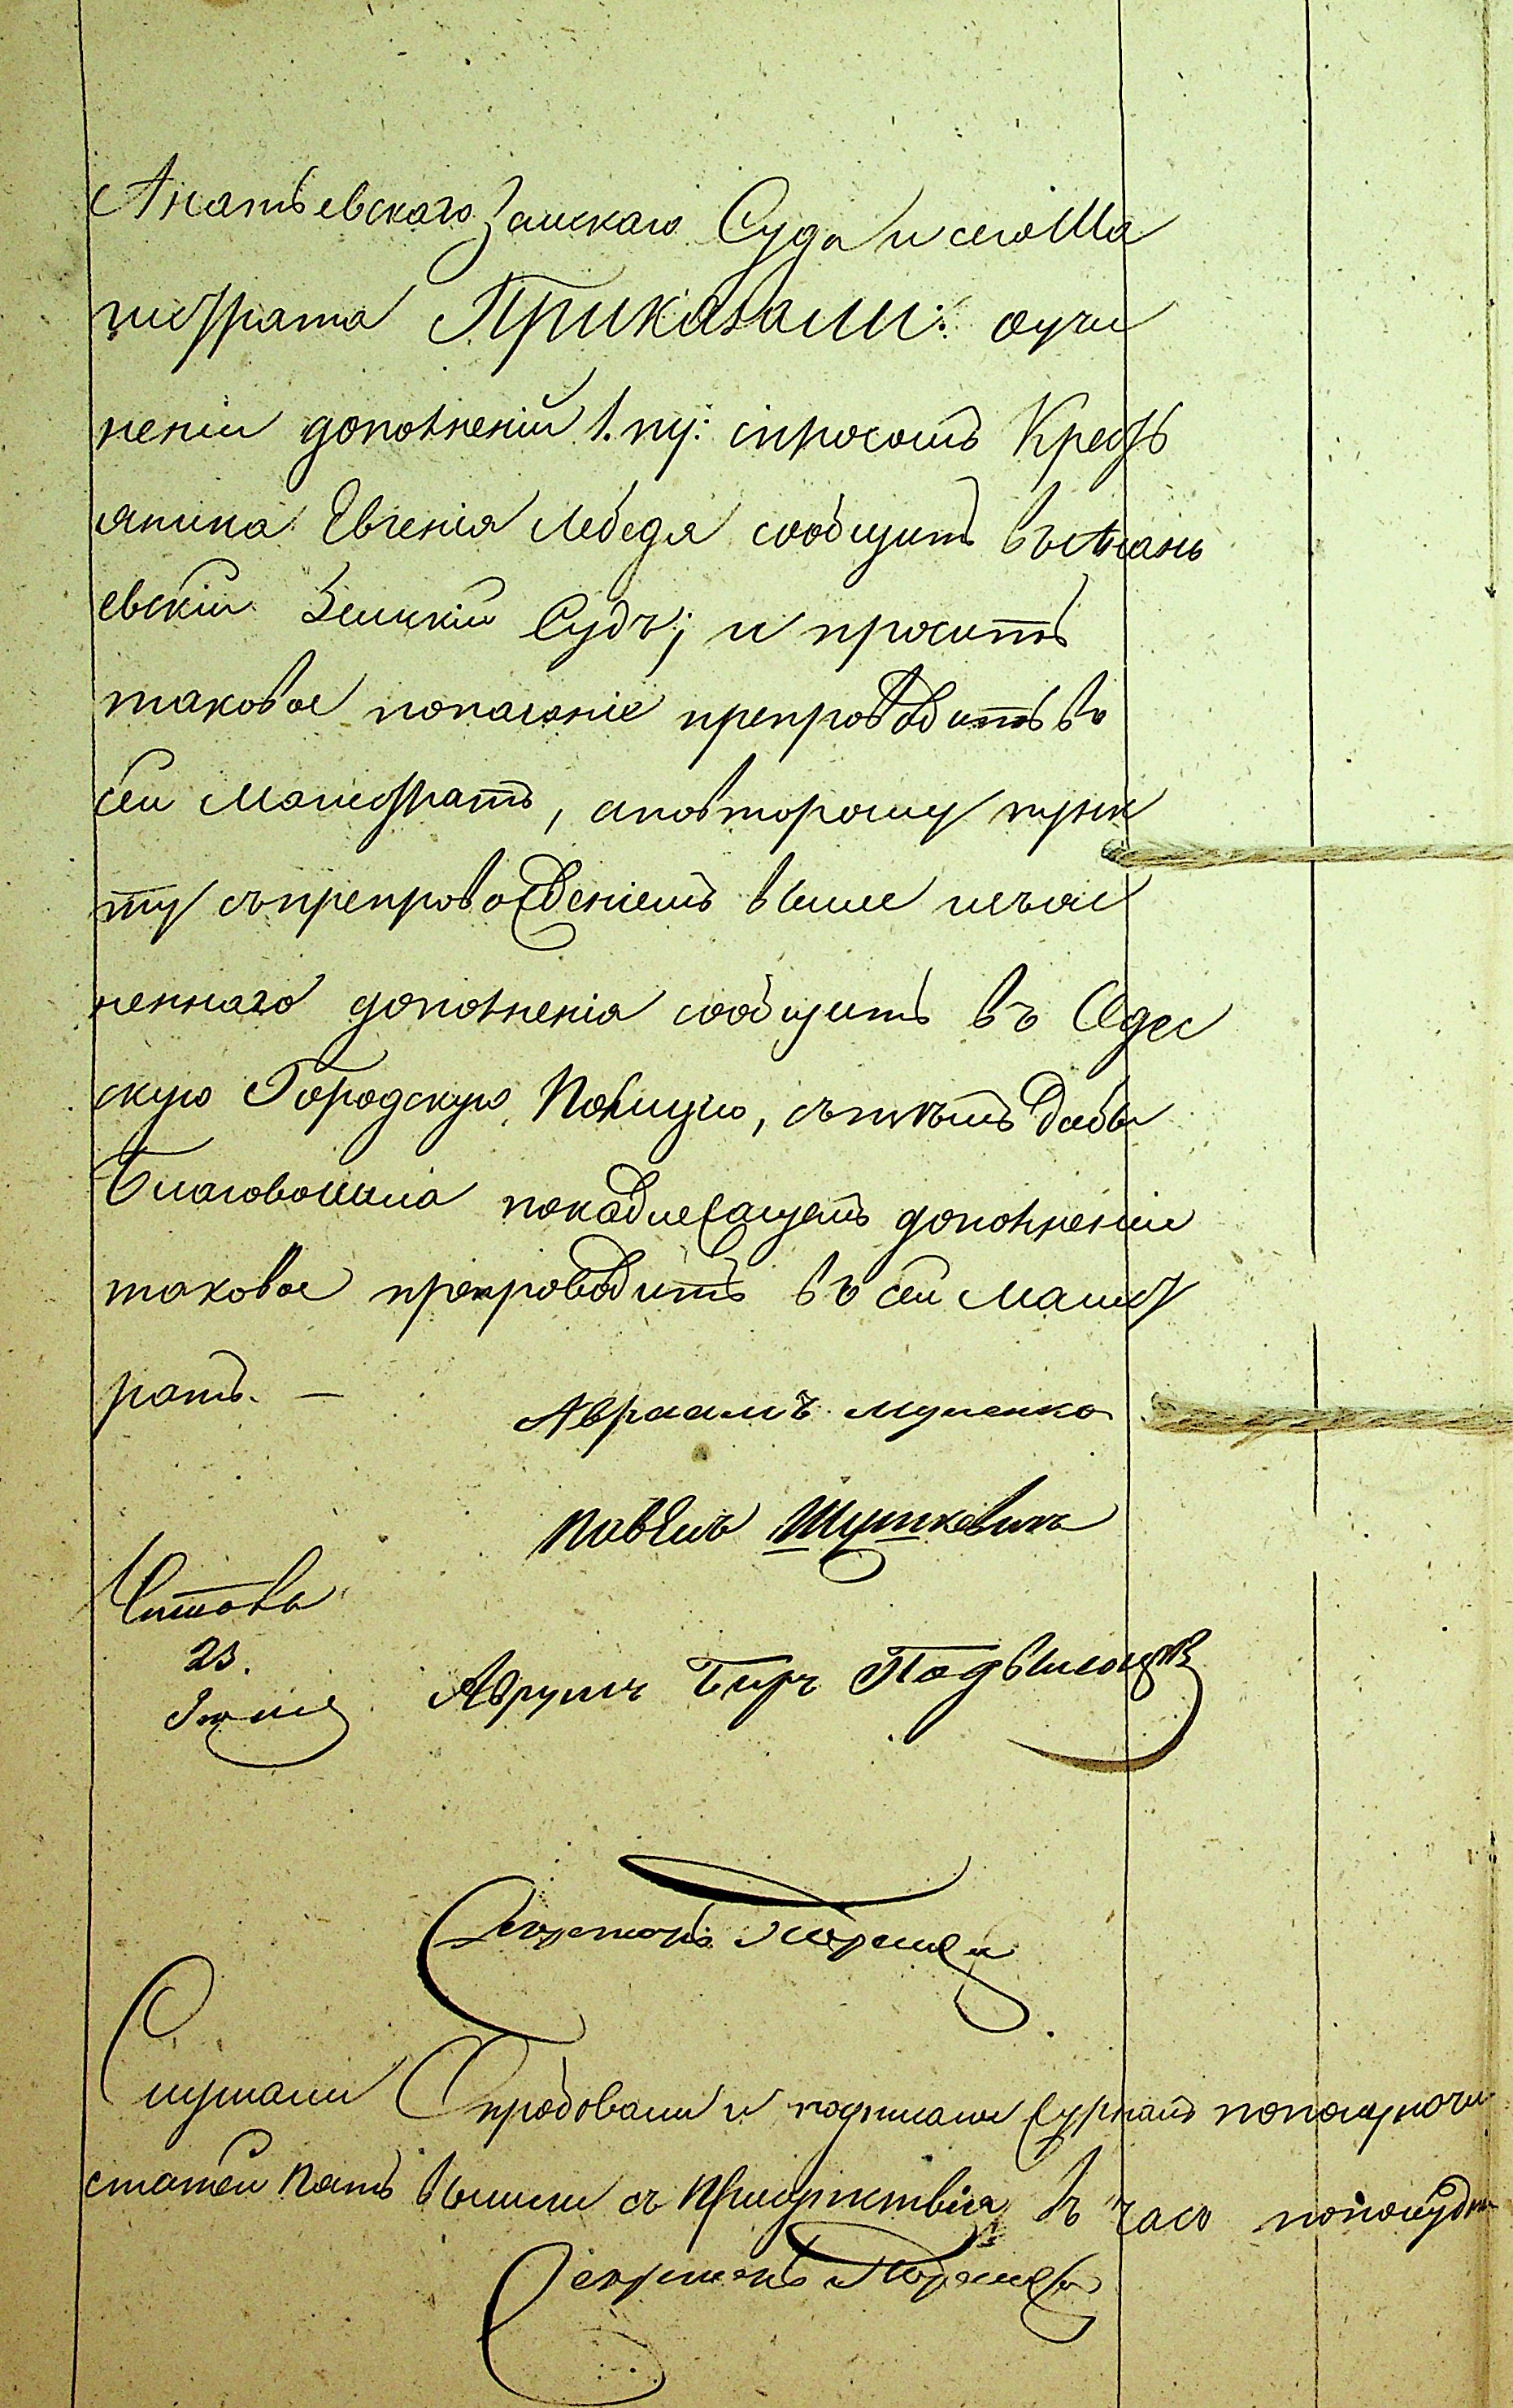 Ананьевскаго Земскаго Суда и сего Ма
гистрата Приказали: о учи
неніи дополненій 1. пу: спросомъ Кресть
янина Евгенія Лебедя сообщить въ Анань
евскій Земскій Судъ; и просить
таковое показаніе препроводить въ
сей Магистратъ, а по второму пунк
ту съ препровожденіемъ выше изъяс
неннаго дополненія сообщить въ Одес
скую Городскую Полицію, съ тѣмъ дабы
благоволила по надлежащемъ дополненіи
таковое препроводить въ сей Магист
ратъ. —
Авраамъ
Павелъ Шушкевичь
Читалъ
23.
Аврумъ Беръ Подвысоцкі
Секретарь
Слушали Опробовали и подписали журналъ пополуночи
статей пять вышли съ присутствія въ часъ пополудни
Секретарь